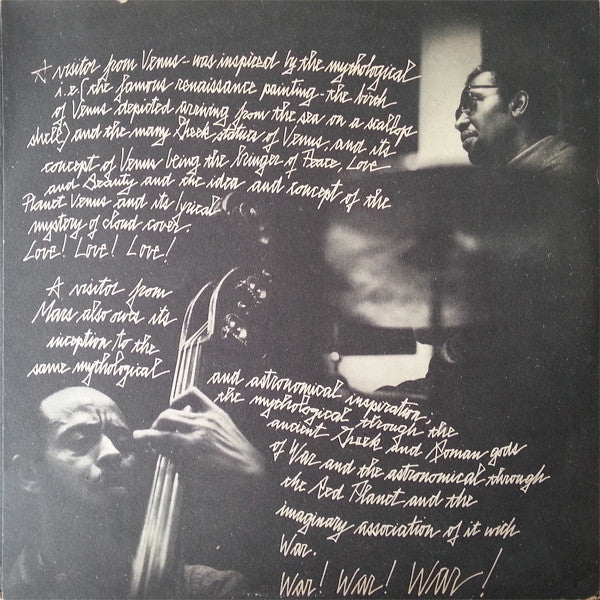 A visitor from Venus - was inspired by the mythological
i.e. (the famous renaissance painting - the birth
of Venus depicted arriving from the sea on a scallop
shell) and the many Greek statues of Venus, and its
concept of Venus being the bringer of Peace, Love
and Beauty and the idea and concept of the
Planet Venus and its lyrical
mystery of cloud cover.
Love! Love! Love!
A visitor from
Mars also owes its
inception to the
same mythological
and astronomical inspiration;
the mythological through the
ancient Greek and Roman gods
of War and the astronomical through
the Red Planet and the
imaginary association of it with
War.
War! War! War!